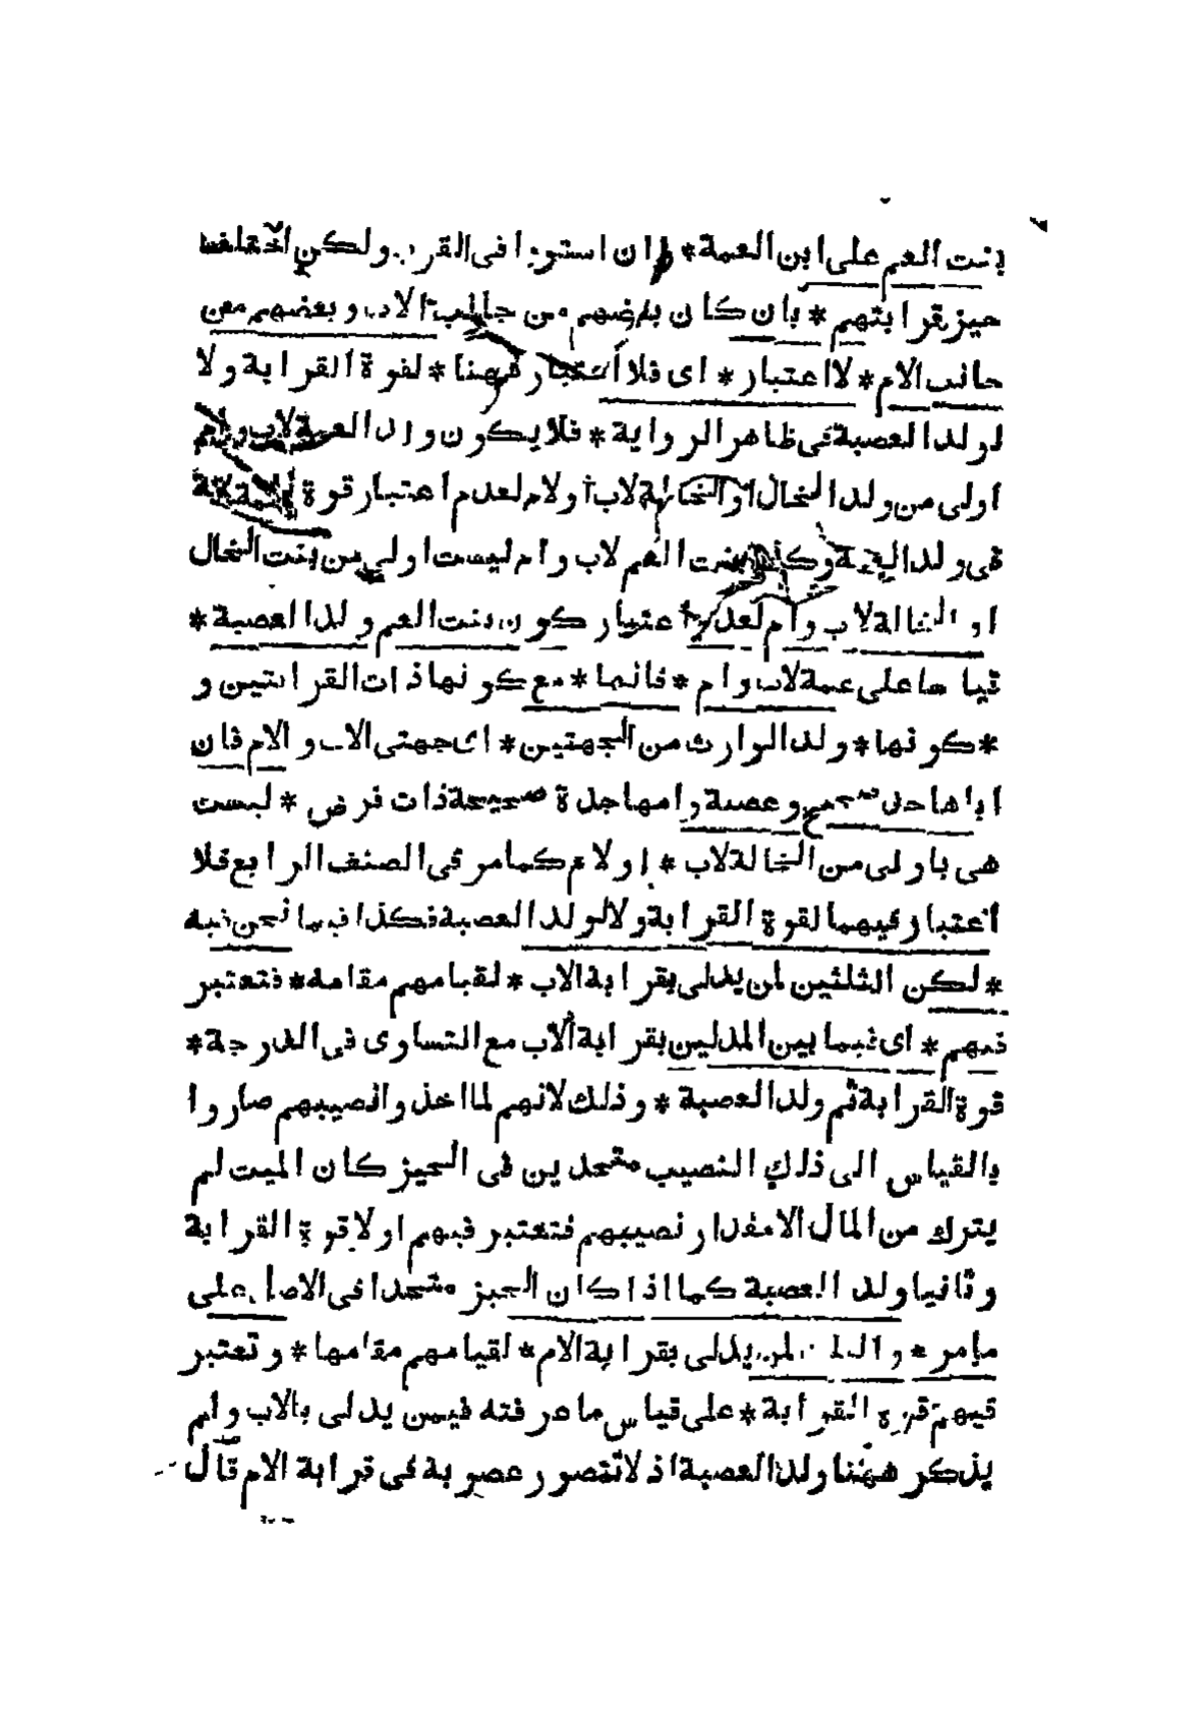 بنت العم على ابن العمة * وان استووا فى القرب ولكن اختلف
حيز قرابتهم * بان كان بعضهم من جانب الاب وبعضهم من
جانب الام * لا اعتبار * اى فلا اعتبار ههنا * لقوة القرابة ولا
لولد العصبة فى ظاهر الرواية * فلا يكون ولد العمة لاب وام
اولى من ولد الخال او الخالة لاب او لام لعدم اعتبار قوة القرابة
فى ولد العمة وكذا بنت العم لاب وام ليست اولى من بنت الخال
او الخالة لاب وام لعدم اعتبار كون بنت العم ولد العصبة *
قياسا على عمة لاب وام * فانها * مع كونها ذات القرابتين و
* كونها * ولد الوارث من الجهتين * اى جهتى الاب والام فان
اباها جد صحيح وعصبة وامها جدة صحيحة ذات فرض * ليست
هى باولى من الخالة لاب * او لام كما مر فى الصنف الرابع فلا
اعتبار فيهما لقوة القرابة ولا لولد العصبة فكذا فيما نحن فيه
* لكن الثلثين لمن يدلى بقرابة الاب * لقيامهم مقامه * فتعتبر
فيهم * اى فيما بين المدلين بقرابة الاب مع التساوى فى الدرجة *
قوة القرابة ثم ولد العصبة * وذلك لانهم لما اخذوا نصيبهم صاروا
بالقياس الى ذلك النصيب متحدين فى الحيز كان الميت لم
يترك من المال الا مقدار نصيبهم فتعتبر فيهم اولا قوة القرابة
وثانيا ولد العصبة كما اذا كان الحيز متحدا فى الاصل على
مامر * والثلث لمن يدلى بقرابة الام * لقيامهم مقامها * وتعتبر
فيهم قوة القرابة * على قياس ما عرفته فيمن يدلى بالاب ولم
يذكر ههنا ولد العصبة اذ لا تتصور عصوبة فى قرابة الام قال